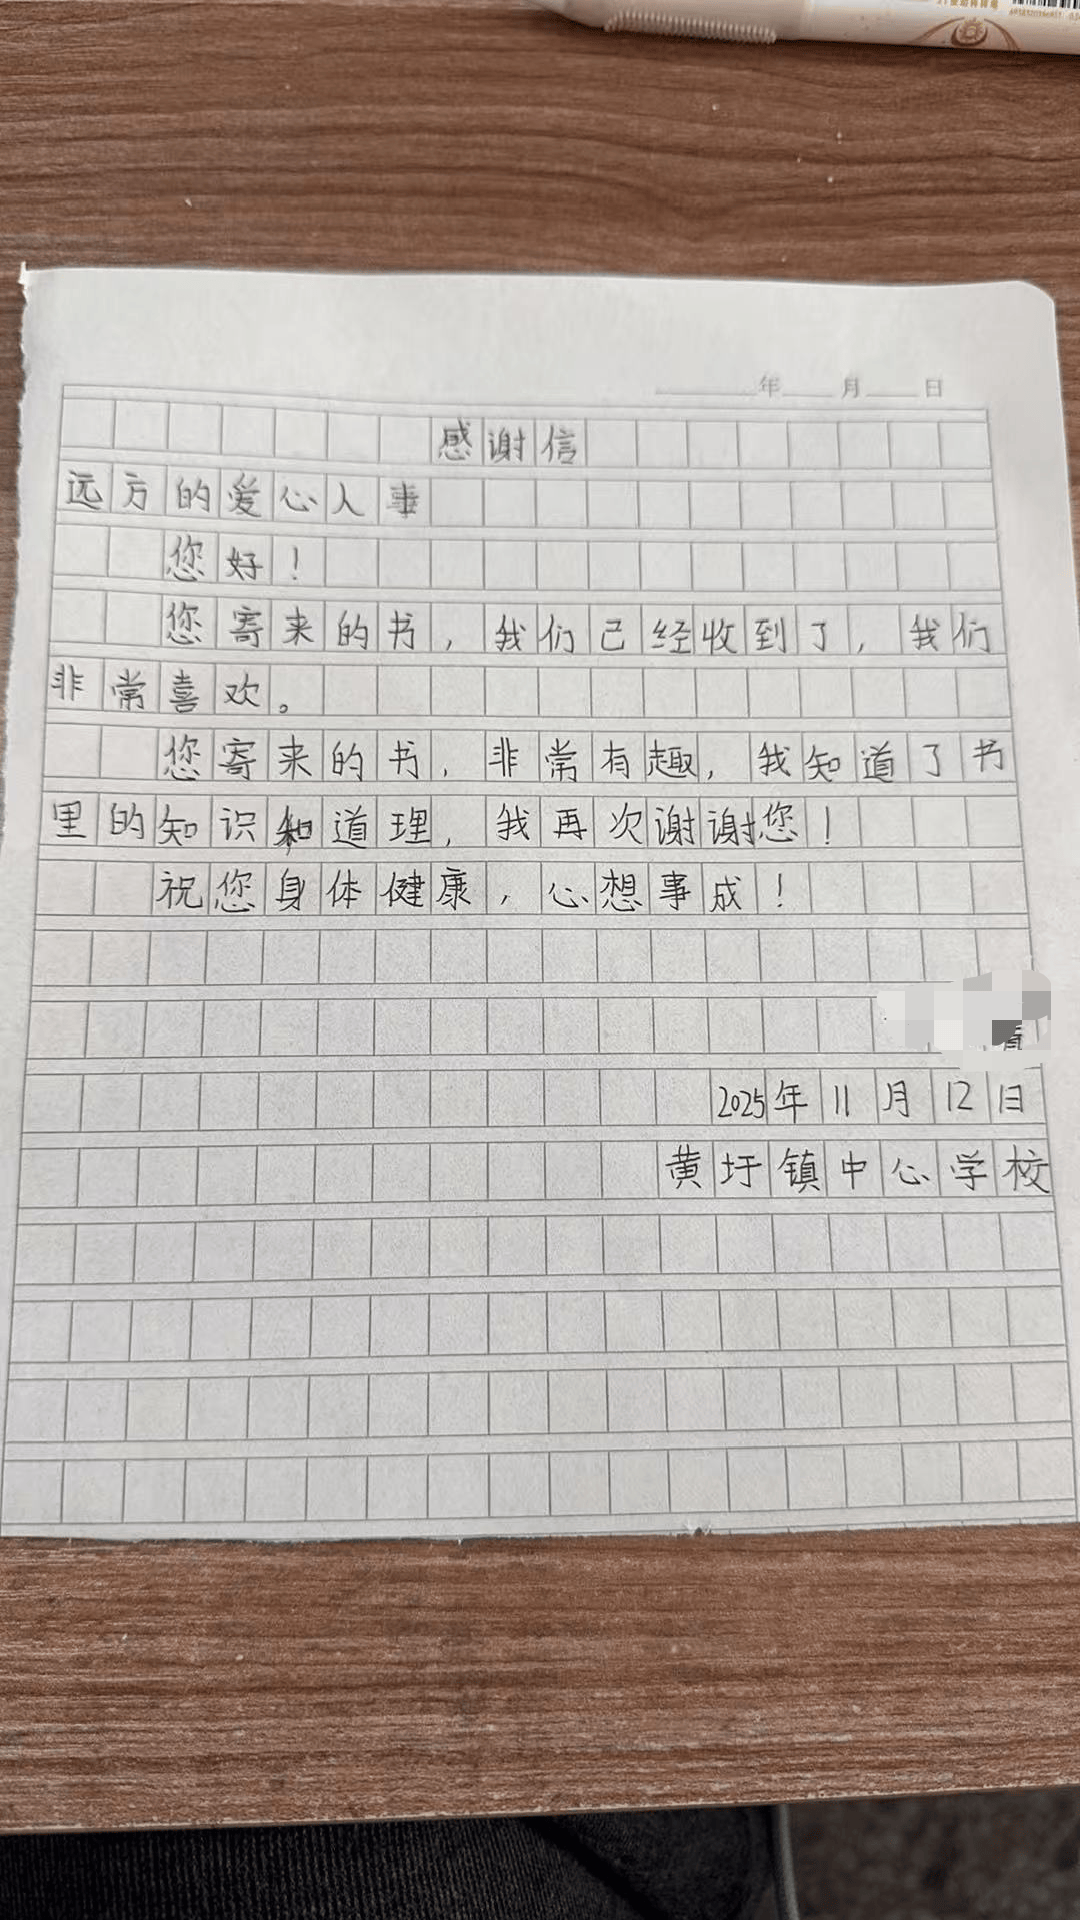 年 月 日
感谢信
远方的爱心人事
您好！
您寄来的书，我们已经收到了，我们
非常喜欢。
您寄来的书，非常有趣，我知道了书
里的知识和道理，我再次谢谢您！
祝您身体健康，心想事成！
2025年11月12日
黄圩镇中心学校